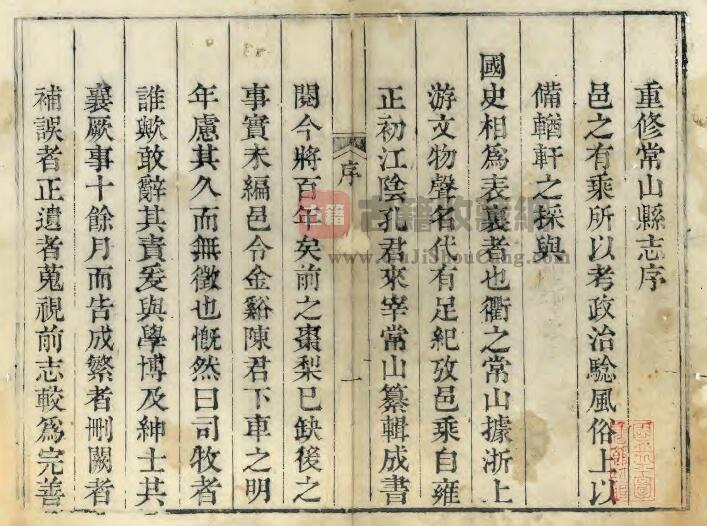 重修常山縣志序
邑之有乘所以考政治騐風俗上以
備輶軒之採與
國史相為表裏者也衢之常山據浙上
游文物聲名代有足紀攷邑乘自雍
正初江陰孔君來宰常山纂輯成書
序
一
閱今將百年矣前之棗梨已缺後之
事實未編邑令金谿陳君下車之明
年慮其久而無徵也慨然曰司牧者
誰歟敢辭其責爰與學博及紳士共
襄厥事十餘月而告成繁者刪闕者
補誤者正遺者蒐視前志較為完善
古籍
古籍收藏網
www.GuJiShouCang.com